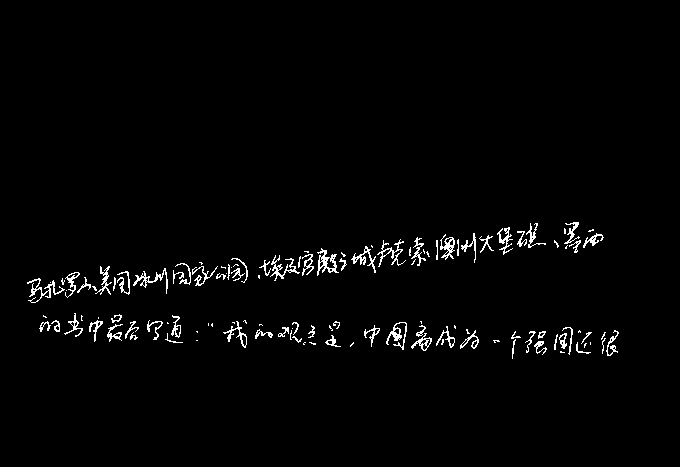 马扎罗山美国冰川国家公园、埃及宫殿之城卢克索、澳洲大堡礁、墨西
的书中最后写道:“我的观点是,中国离成为一个强国还很